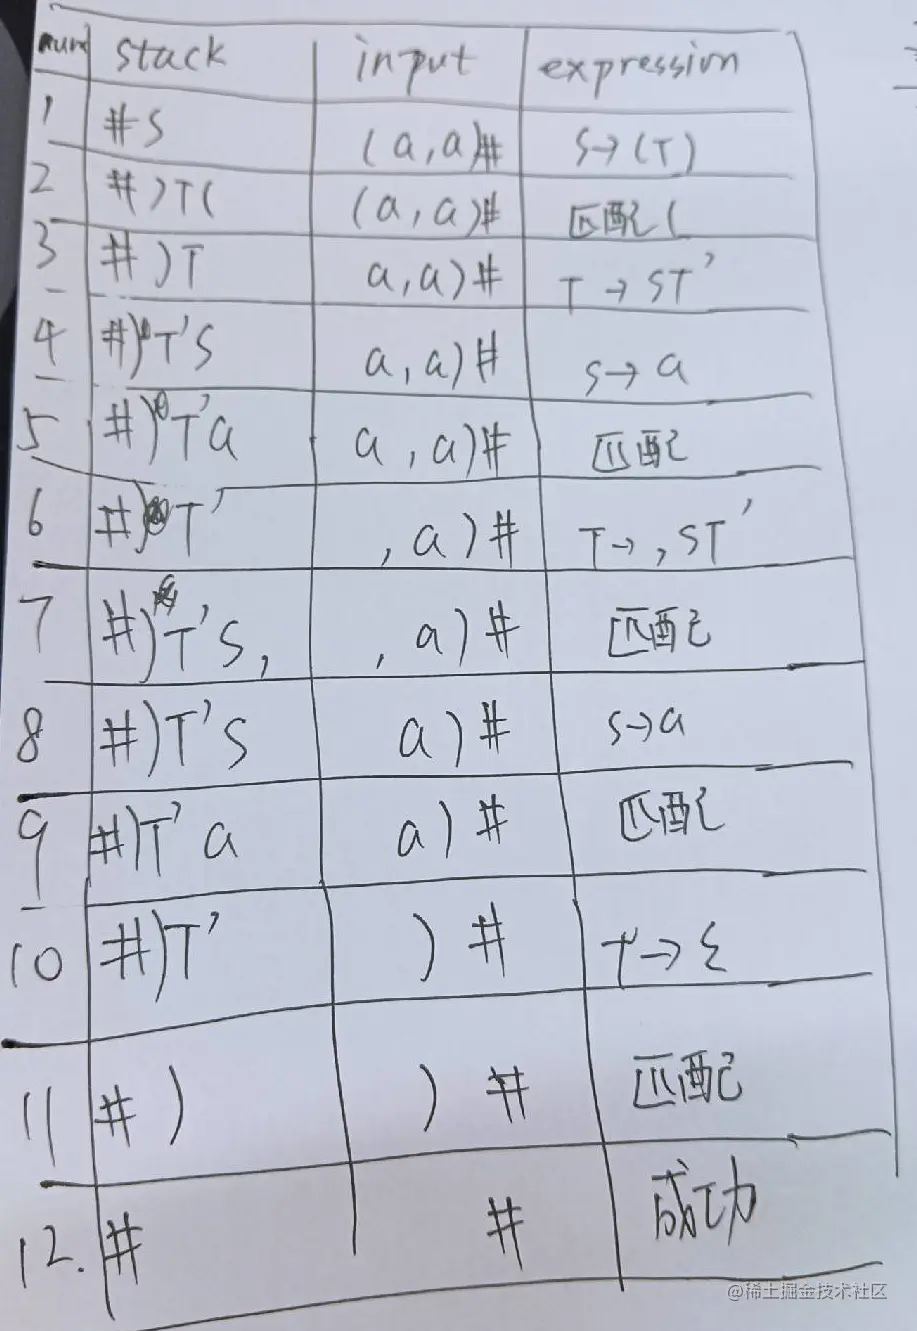 num stack input expression
1 #S (a,a)# S→(T)
2 #)T( (a,a)# 匹配(
3 #)T a,a)# T→ST'
4 #)T'S a,a)# S→a
5 #)T'a a,a)# 匹配
6 #)T' ,a)# T→,ST'
7 #)T'S, ,a)# 匹配
8 #)T'S a)# S→a
9 #)T'a a)# 匹配
10 #)T' )# T'→ε
11 #) )# 匹配
12. # # 成功
@稀土掘金技术社区